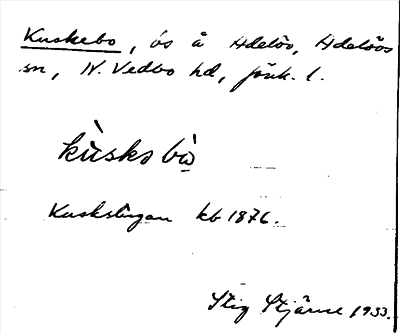 Kuskebo, ös å Adelöv, Adelövs
sn, N. Vedbo hd, Jönk. l.
kùskebò
Kuskstugan kb 1876.
Stig Stjärne 1933.